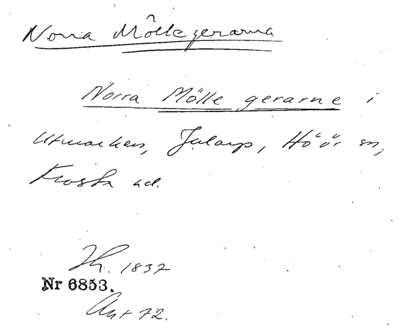 Norra Möllegerarna
Norra Mölle gerarne i
Utmarken, Jularp, Höör sn,
Frosta hd.
Th. 1837
Nr 6853.
Akt 72.